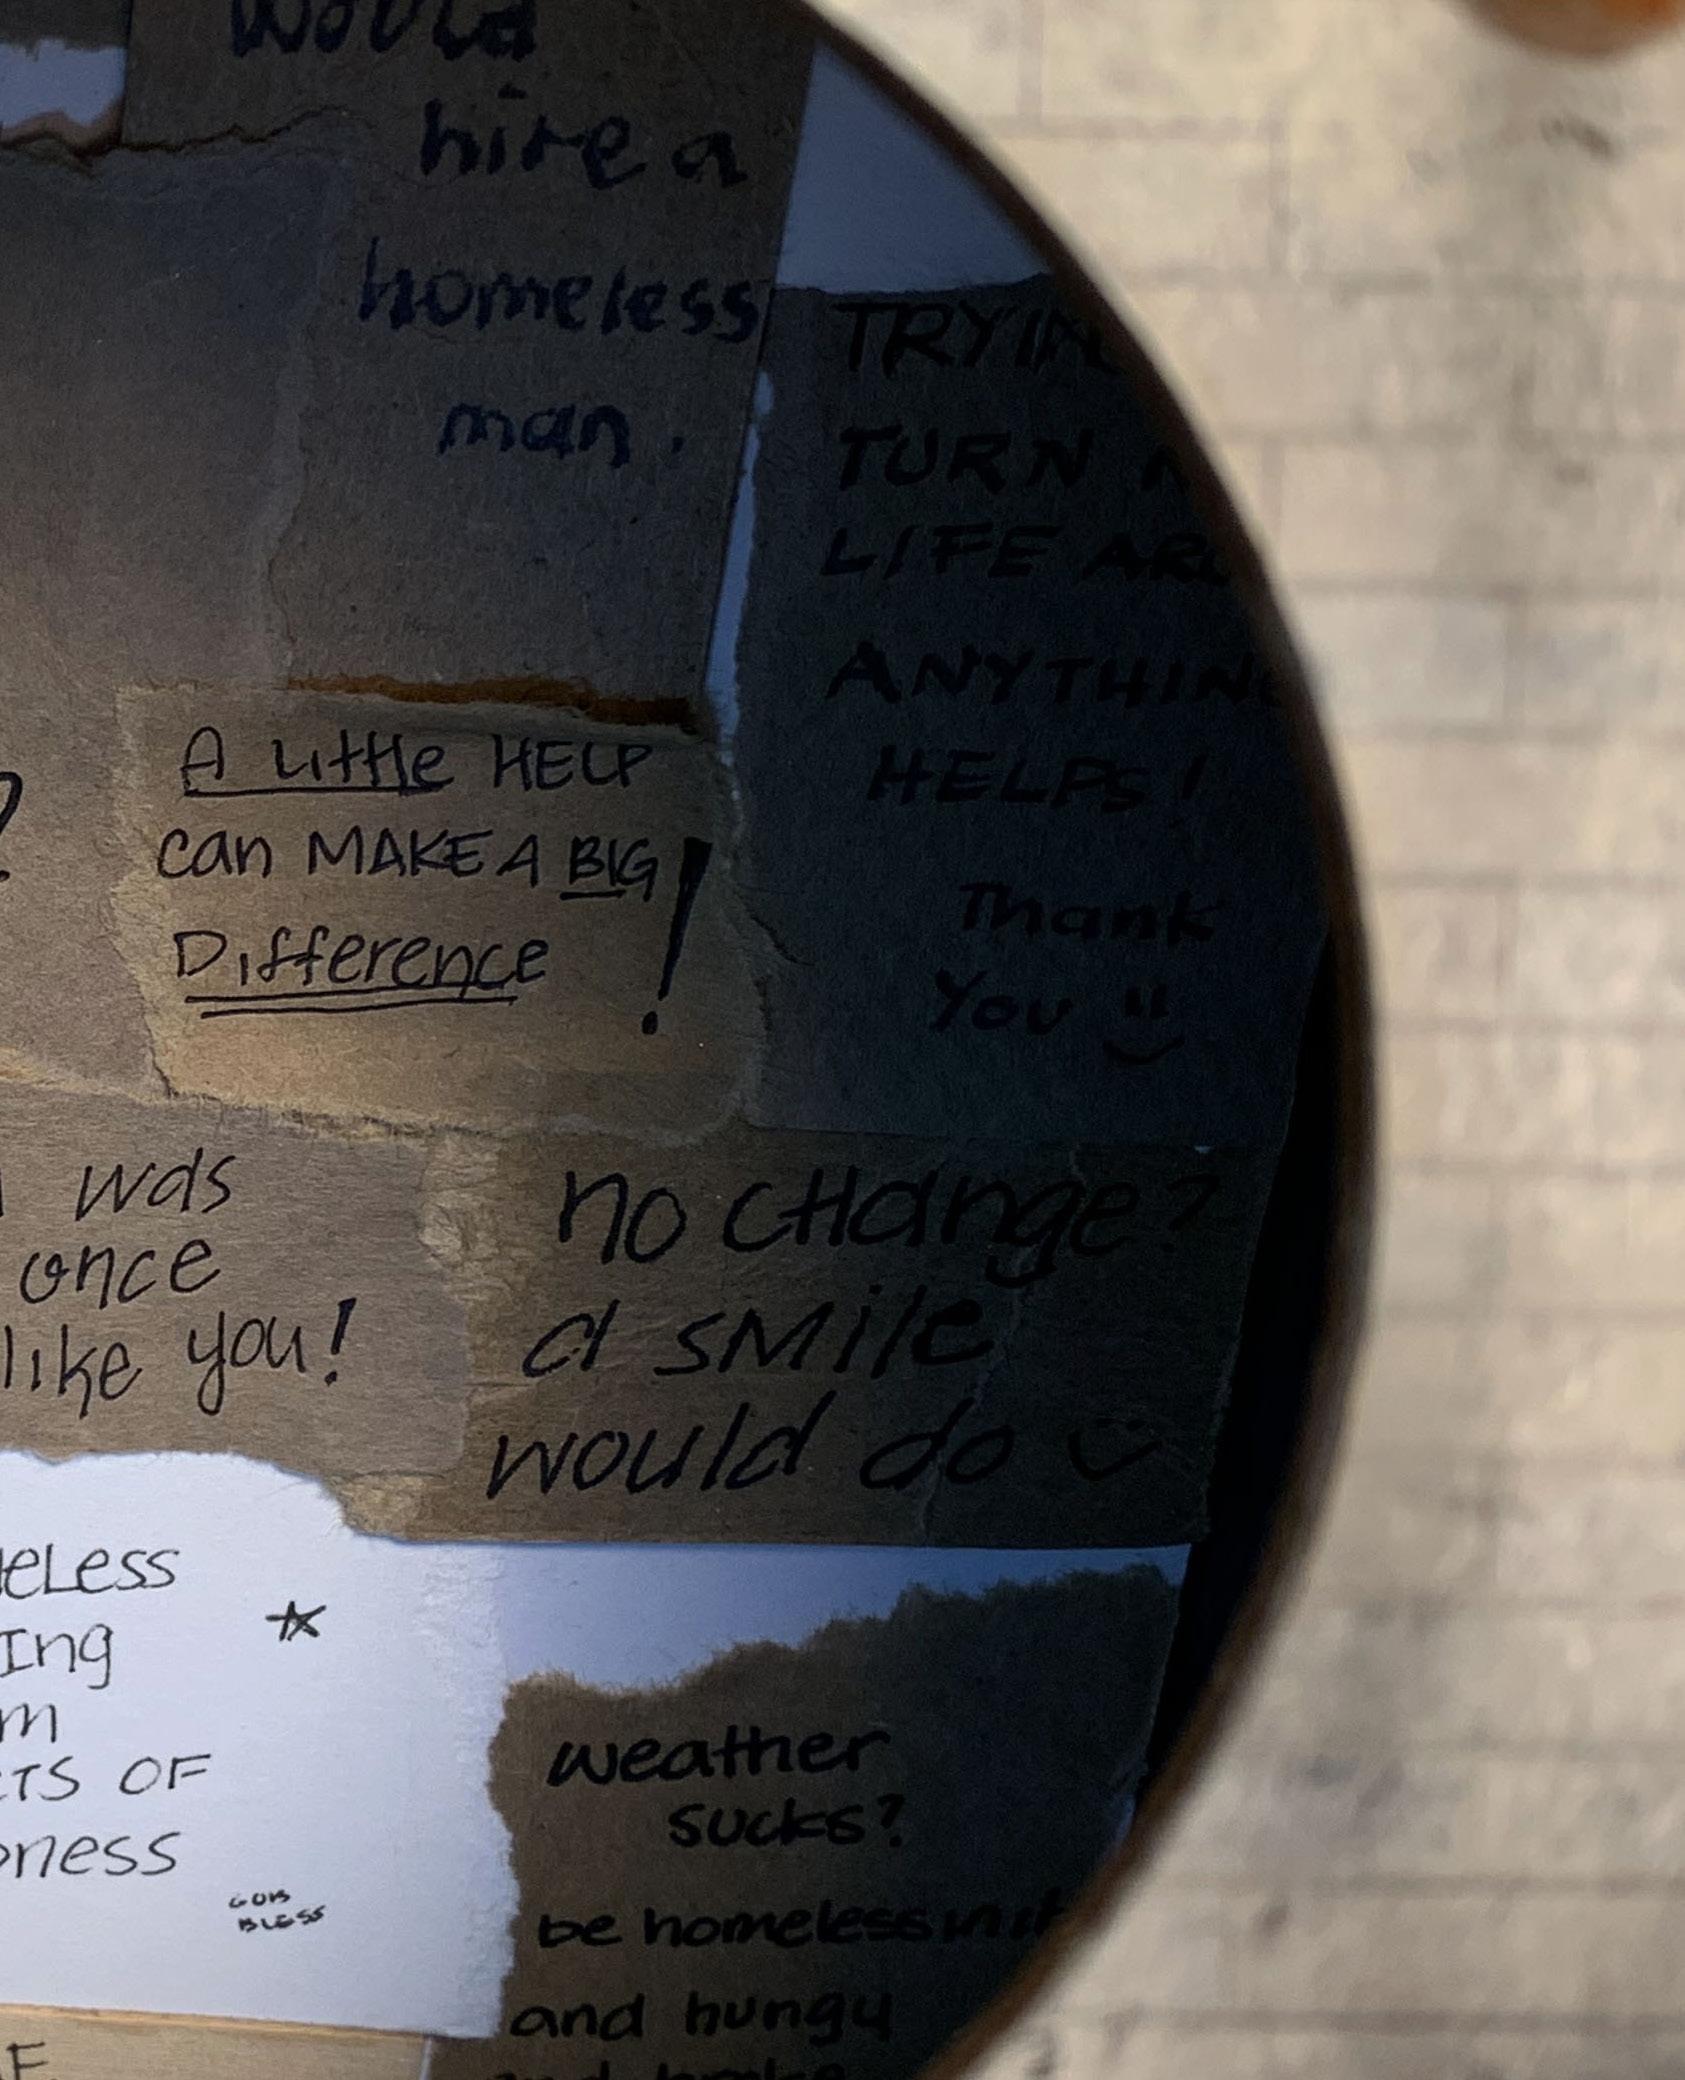 would
hire a
homeless
man.
TURN
LIFE
ANYTHING
HELPS!
Thank
You
?
A Little HELP
can MAKE A BIG
Difference!
was
once
like you!
no cHange?
a sMile
would do
OF
GOD
BLESS
weather
sucks?
be homeless in it
and hungy